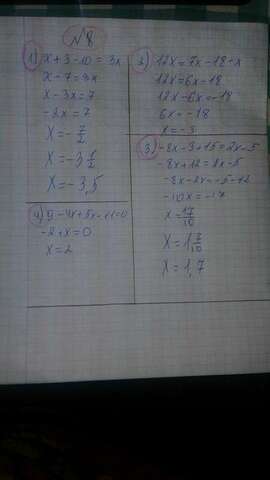 №8
1) x + 3 - 10 = 3x
x - 7 = 3x
x - 3x = 7
-2x = 7
x = - 7/2
x = -3 1/2
x = -3,5
2) 12x = 7x - 18 - x
12x = 6x - 18
12x - 6x = -18
6x = -18
x = -3
3) -8x - 3 + 15 = 2x - 5
-8x + 12 = 2x - 5
-8x - 2x = -5 - 12
-10x = -17
x = 17/10
x = 1 7/10
x = 1,7
-2 + x = 0
x = 2